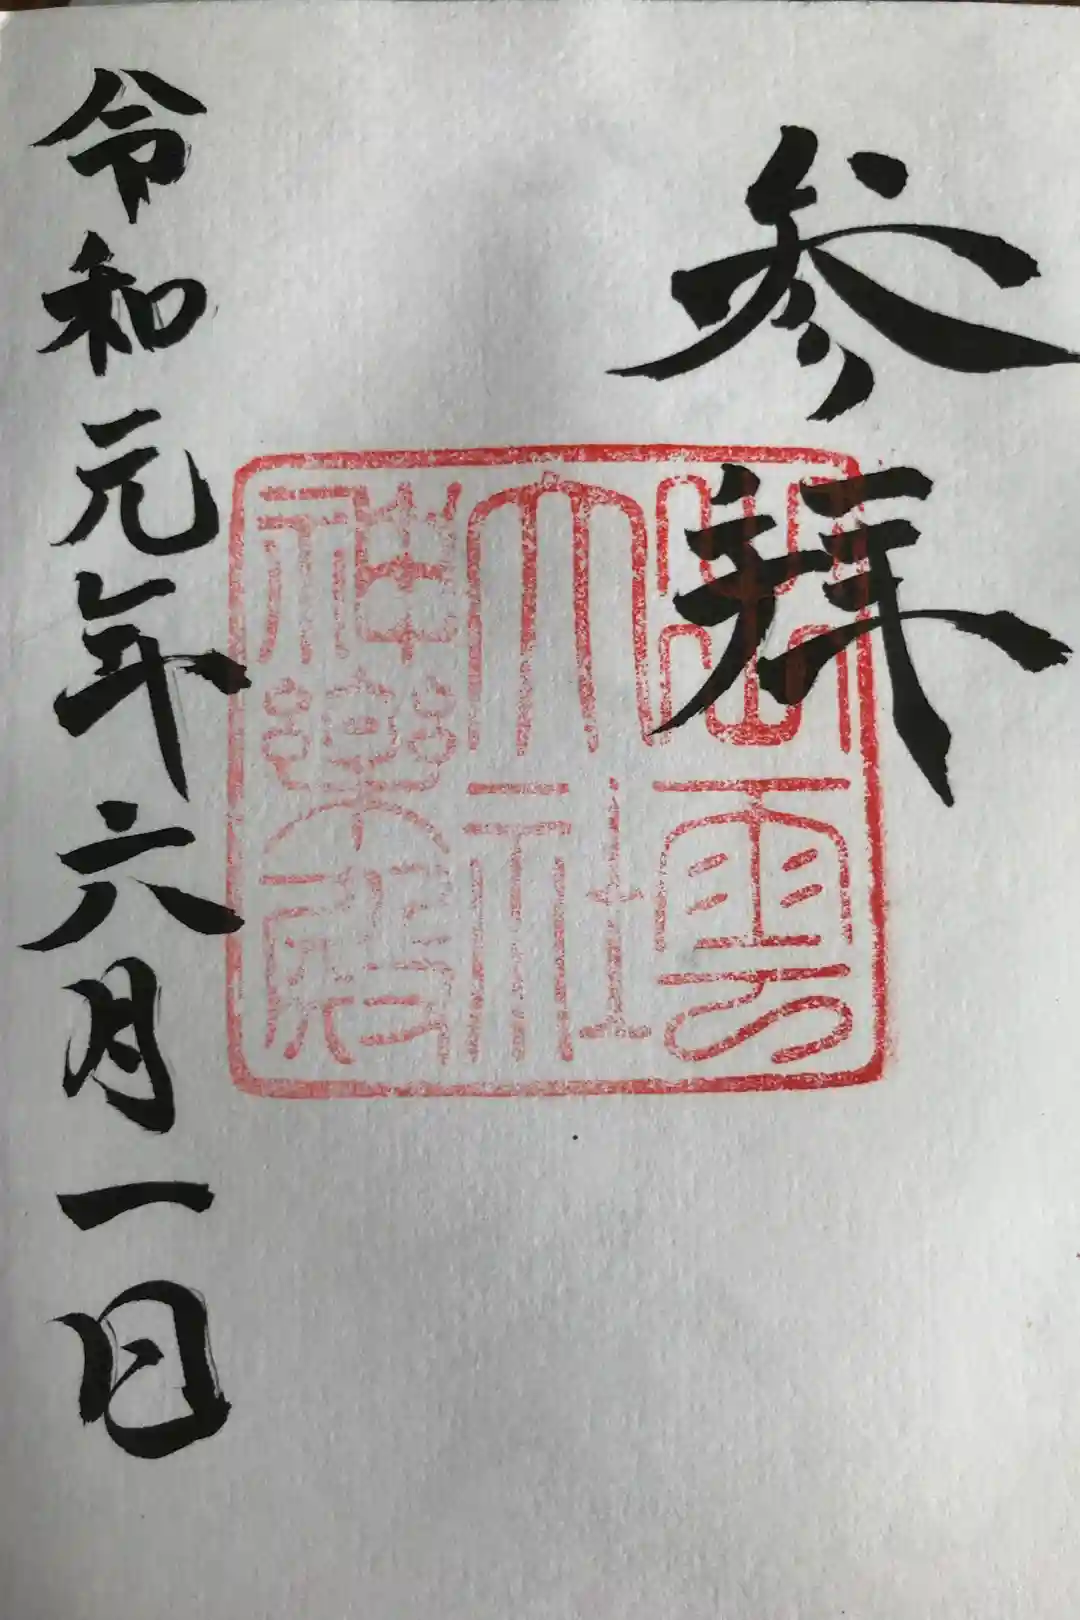 参拝
出雲
大社
神樂殿
令和元年六月一日